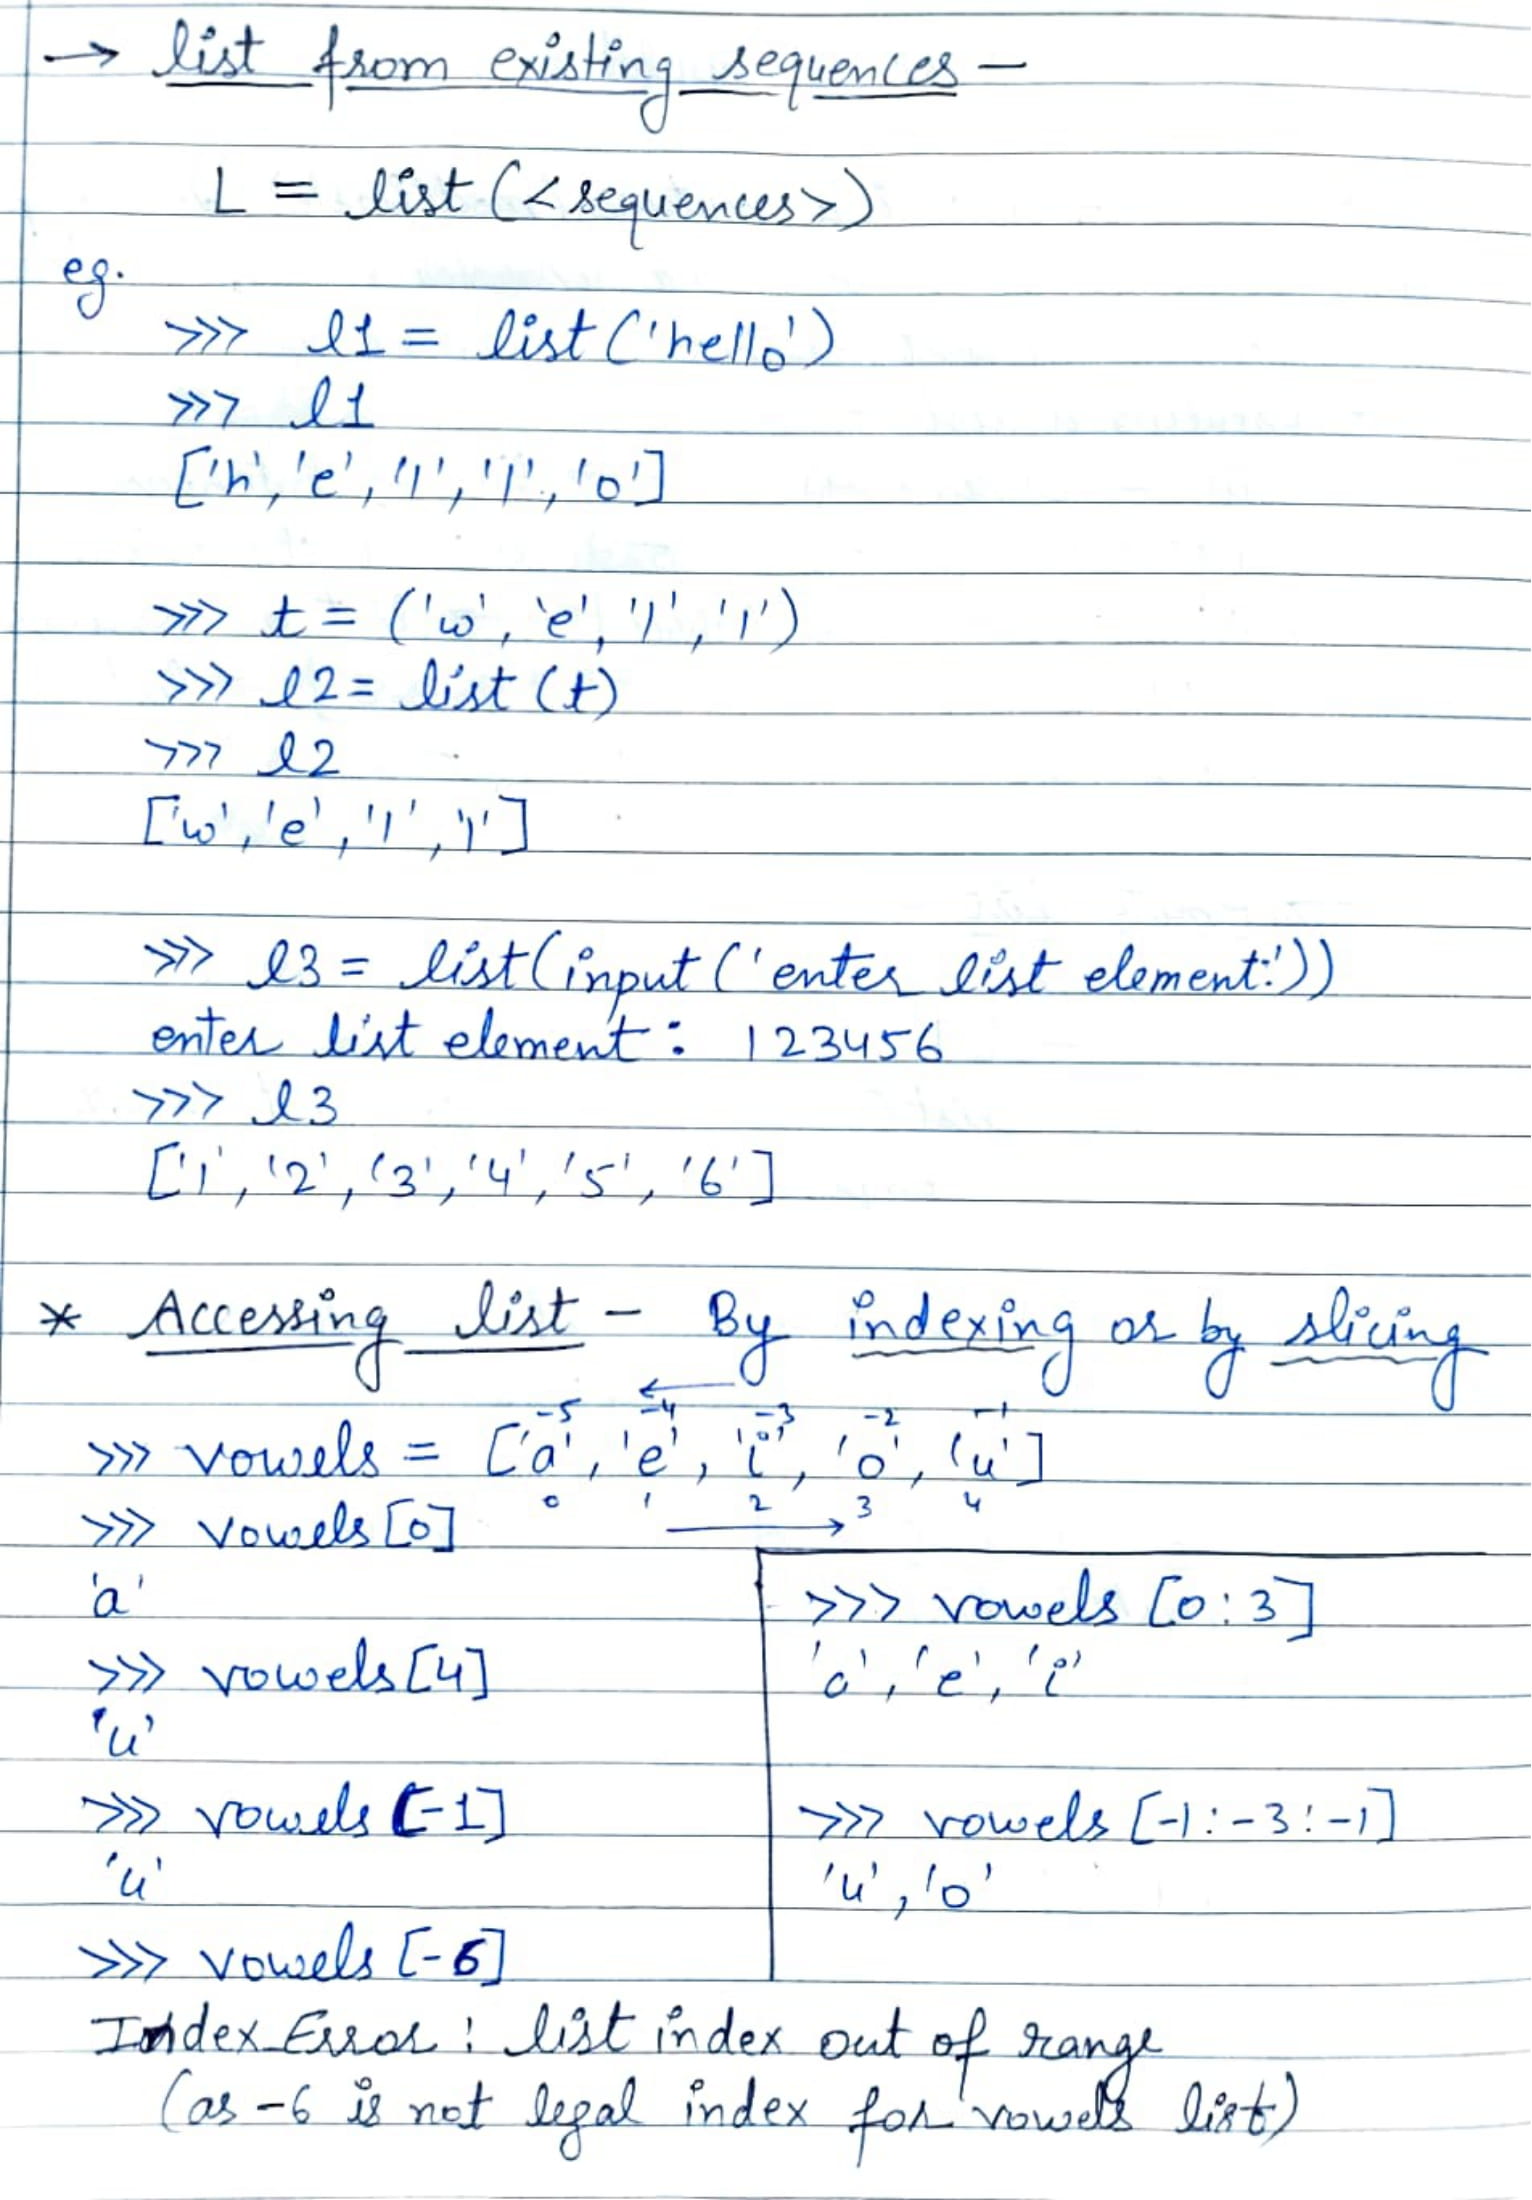 → list from existing sequences -
L = list (<sequences>)
eg.
>>> l1 = list ('hello')
>>> l1
['h', 'e', 'l', 'l', 'o']
>>> t = ('w', 'e', 'l', 'l')
>>> l2 = list (t)
>>> l2
['w', 'e', 'l', 'l']
>>> l3 = list (input ('enter list element:'))
enter list element : 123456
>>> l3
['1', '2', '3', '4', '5', '6']
* Accessing list - By indexing or by slicing
←
-5 -4 -3 -2 -1
>>> vowels = ['a', 'e', 'i', 'o', 'u']
0 1 2 3 4
→
>>> vowels [0]
'a'
>>> vowels [4]
'u'
>>> vowels [-1]
'u'
>>> vowels [-6]
>>> vowels [0:3]
'a', 'e', 'i'
>>> vowels [-1:-3:-1]
'u', 'o'
Index Error : list index out of range
(as -6 is not legal index for vowels list)